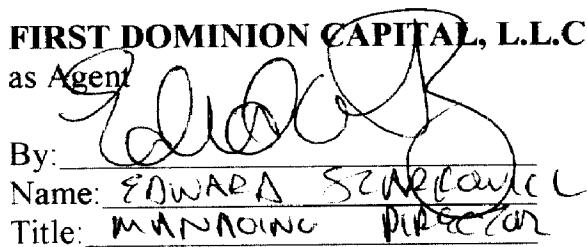 FIRST DOMINION CAPITAL, L.L.C
as Agent
By:
Name: EDWARD
Title: MANAGING DIRECTOR